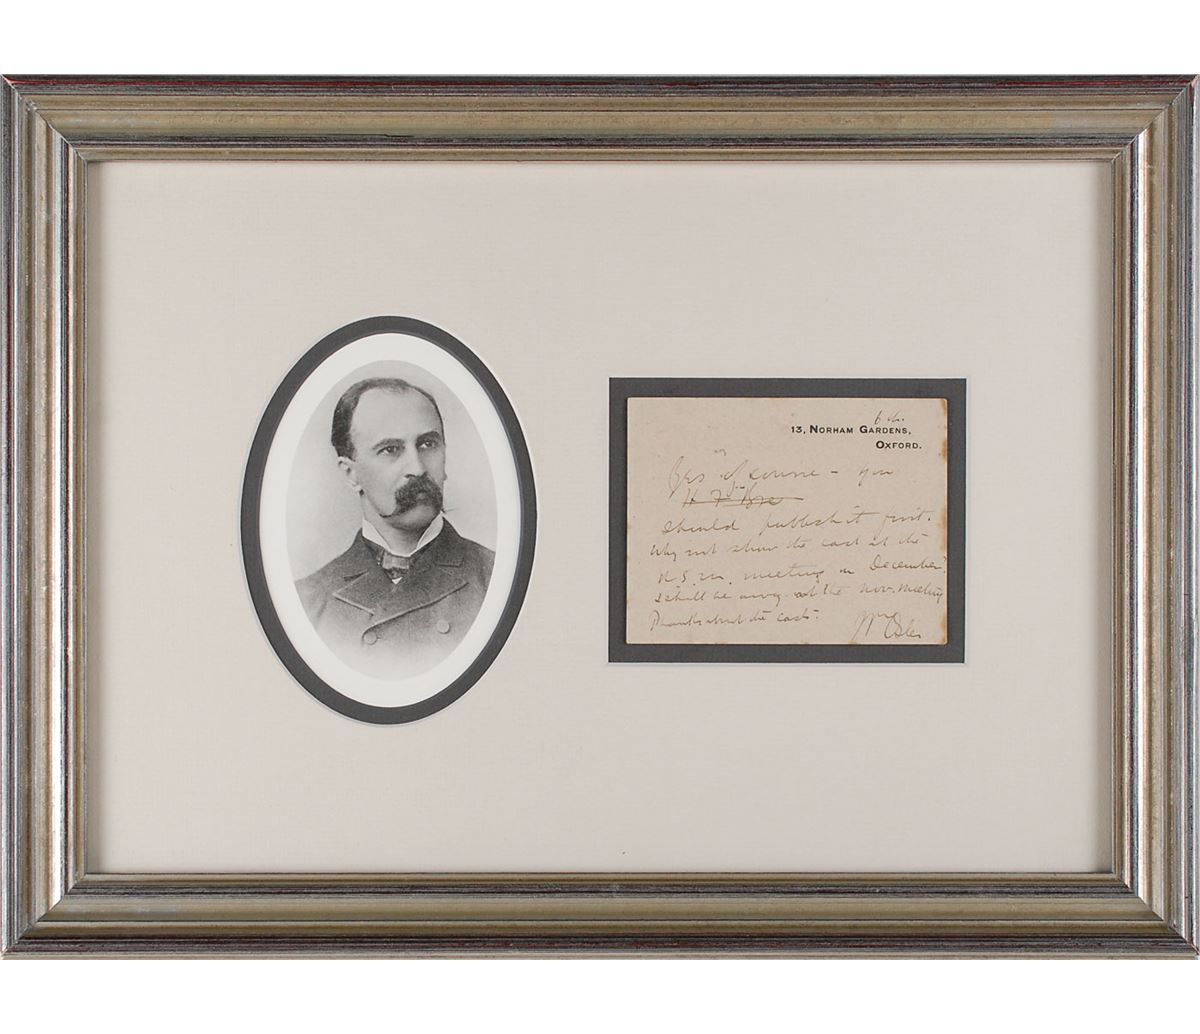 6th.
13, NORHAM GARDENS,
OXFORD.
Yes of course - you
should publish it first.
Why not show the cast at the
meeting in December?
I shall be away at the Nov. meeting
Thanks about the casts.
Wm Osler